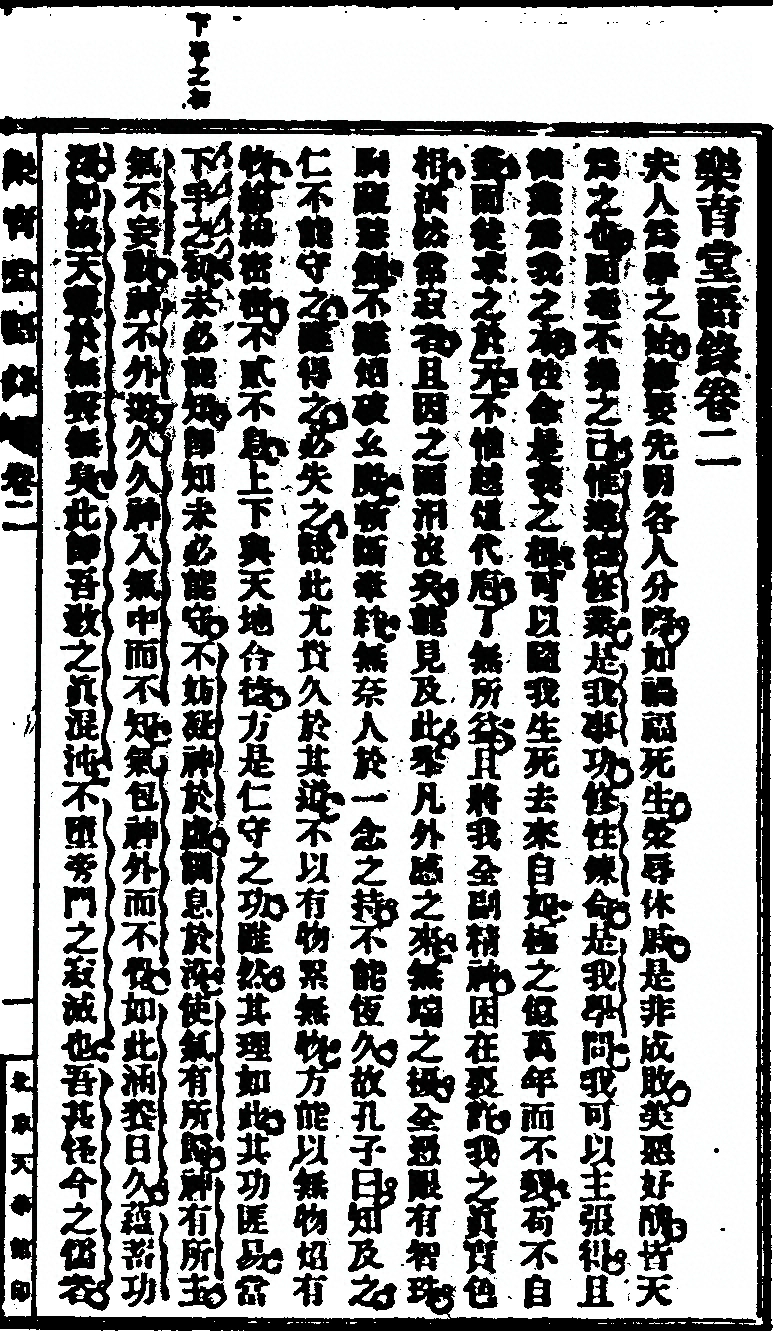 下學之初
樂育堂語錄卷二
夫人爲學之始總要先明各人分際如禍福死生榮辱休戚是非成敗美惡好醜皆天
爲之也面毫不操之己惟進德修業是我事功修性煉命是我學問我可以主張得且
德業爲我之本性命是我之根可以隨我生死去來自如極之億萬年而不發苟不自
盡而徒求之於天不惟越俎代庖了無所益且將我全副精神困在裏許我之眞實色
相湛然常寂者且因之而汨沒矣能見及此舉凡外感之來無端之擾全憑眼有智珠
胸藏慧劍不難炤破幺魔斬斷牽纏無奈人於一念之持不能恆久故孔子曰知及之
仁不能守之雖得之必失之觀此尤貴久於其道不以有物累無物方能以無物炤有
物綿綿密密不貳不息上下與天地合德方是仁守之功雖然其理如此其功匪易當
下手之初未必能知卽知未必能守不妨凝神於虛調息於漠使氣有所歸神有所主
氣不妄動神不外遊久久神入氣中而不知氣包神外而不覺如此涵養日久蘊蓄功
深卽協天載於無聲無臭此卽吾敎之眞混沌不墮旁門之寂滅也吾甚怪今之儒者
樂育堂語錄
卷二
一
北京天華館印